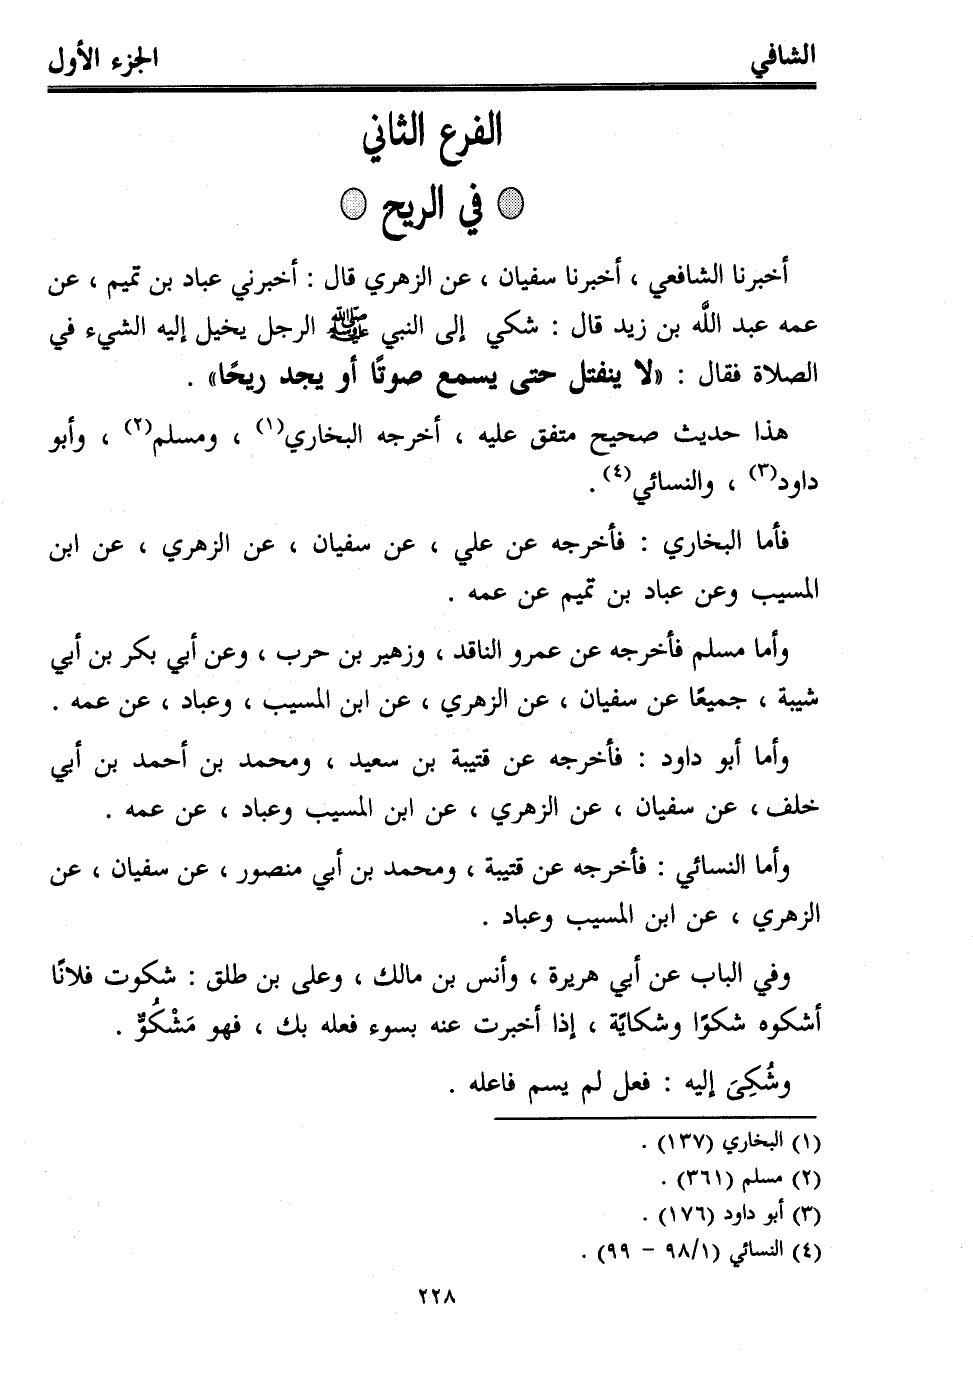 الشافي
الجزء الأول
الفرع الثاني
في الريح
أخبرنا الشافعي ، أخبرنا سفيان ، عن الزهري قال : أخبرني عباد بن تميم ، عن
عمه عبد اللَّه بن زيد قال : شكي إلى النبي ﷺ الرجل يخيل إليه الشيء في
الصلاة فقال : «لا ينفتل حتى يسمع صوتًا أو يجد ريحًا» .
هذا حديث صحيح متفق عليه ، أخرجه البخاري(١) ، ومسلم(٢) ، وأبو
داود(٣) ، والنسائي(٤) .
فأما البخاري : فأخرجه عن علي ، عن سفيان ، عن الزهري ، عن ابن
المسيب وعن عباد بن تميم عن عمه .
وأما مسلم فأخرجه عن عمرو الناقد ، وزهير بن حرب ، وعن أبي بكر بن أبي
شيبة ، جميعًا عن سفيان ، عن الزهري ، عن ابن المسيب ، وعباد ، عن عمه .
وأما أبو داود : فأخرجه عن قتيبة بن سعيد ، ومحمد بن أحمد بن أبي
خلف ، عن سفيان ، عن الزهري ، عن ابن المسيب وعباد ، عن عمه .
وأما النسائي : فأخرجه عن قتيبة ، ومحمد بن أبي منصور ، عن سفيان ، عن
الزهري ، عن ابن المسيب وعباد .
وفي الباب عن أبي هريرة ، وأنس بن مالك ، وعلى بن طلق : شكوت فلانًا
أشكوه شكوًا وشكايًة ، إذا أخبرت عنه بسوء فعله بك ، فهو مَشْكُوٌّ .
وشُكِىَ إليه : فعل لم يسم فاعله .
(١) البخاري (١٣٧) .
(٢) مسلم (٣٦١) .
(٣) أبو داود (١٧٦) .
(٤) النسائي (٩٨/١ – ٩٩) .
٢٢٨